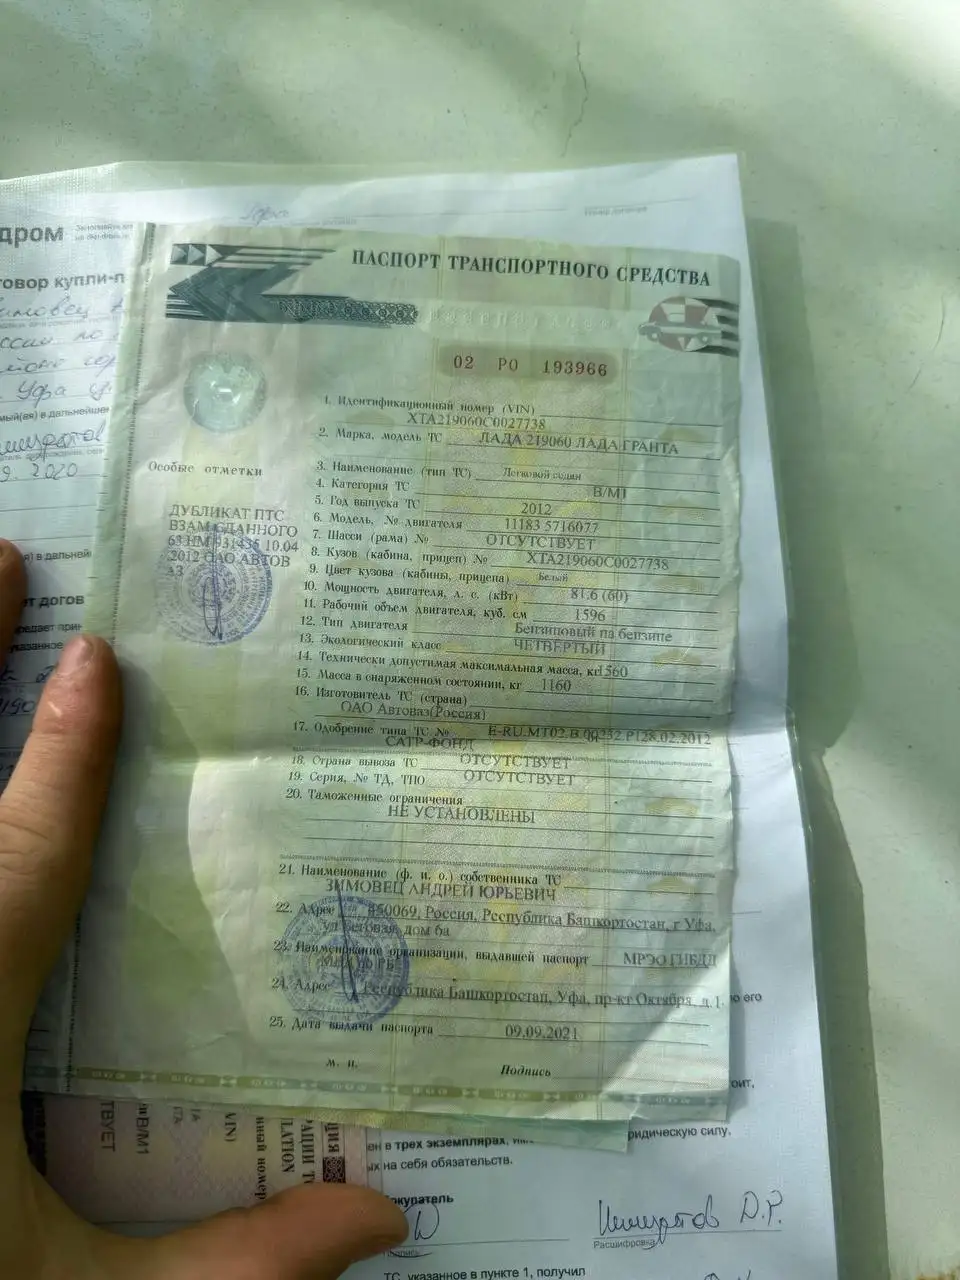 дром
говор купли-п
Уфа
9. 2020
ПАСПОРТ ТРАНСПОРТНОГО СРЕДСТВА
02 РО 193966
1. Идентификационный номер (VIN)
XTA219060C0027738
2. Марка, модель ТС ЛАДА 219060 ЛАДА ГРАНТА
3. Наименование (тип ТС) Легковой седан
4. Категория ТС B/M1
5. Год выпуска ТС 2012
6. Модель, № двигателя 11183 5716077
7. Шасси (рама) № ОТСУТСТВУЕТ
8. Кузов (кабина, прицеп) № XTA219060C0027738
9. Цвет кузова (кабины, прицепа) Белый
10. Мощность двигателя, л. с. (кВт) 81.6 (60)
11. Рабочий объем двигателя, куб. см 1596
12. Тип двигателя Бензиновый на бензине
13. Экологический класс ЧЕТВЕРТЫЙ
14. Технически допустимая максимальная масса, кг 1560
15. Масса в снаряженном состоянии, кг 1160
16. Изготовитель ТС (страна)
ОАО Автоваз(Россия)
17. Одобрение типа ТС № 28.02.2012
САТР-ФОНД
18. Страна вывоза ТС ОТСУТСТВУЕТ
19. Серия, № ТД, ТПО ОТСУТСТВУЕТ
20. Таможенные ограничения
НЕ УСТАНОВЛЕНЫ
21. Наименование (ф. и. о.) собственника ТС
ЗИМОВЕЦ АНДРЕЙ ЮРЬЕВИЧ
22. Адрес 450069, Россия, Республика Башкортостан, г Уфа,
дом 6а
23. Наименование организации, выдавшей паспорт МРЭО ГИБДД
24. Адрес Республика Башкортостан, Уфа, пр-кт Октября, д.1
25. Дата выдачи паспорта 09.09.2021
м. п. Подпись
Особые отметки
ДУБЛИКАТ ПТС
ВЗАМ СДАННОГО
63 НМ 931435 10.04
2012 ОАО АВТОВ
АЗ
ен в трех экземплярах,
ридическую силу.
ых на себя обязательств.
окупатель
Подпись
Д.Р.
Расшифровка
ТС, указанное в пункте 1, получил